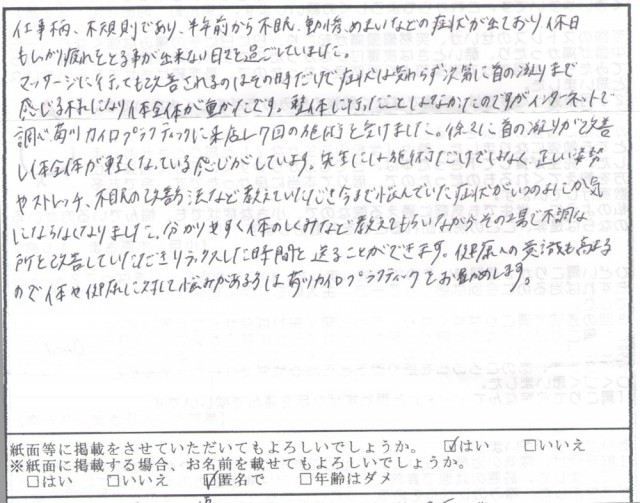 仕事柄、不規則であり、半年前から不眠、動悸、めまいなどの症状が出ており休日
もしっかり疲れをとる事が出来ない日々を過ごしていました。
マッサージに行っても改善されるのはその時だけで症状は変わらず次第に首の凝りまで
感じる様になり体全体が重かったです。整体に行ったことはなかったのですがインターネットで
調べ菊リカイロプラクティックに来店し7回の施術を受けました。徐々に首の凝りが改善
し体全体が軽くなっている感じがしています。先生には施術だけではなく、正しい姿勢
やストレッチ、不眠の改善方法など教えていただき今まで悩んでいた症状がいつのまにか気
にならなくなりました。分かりやすく体のしくみなど教えてもらいながらその場で不調な
所を改善していただきリラックスした時間を送ることができます。健康への意識も高まる
ので体や健康に対して悩みがある方は菊リカイロプラクティックをお薦めします。
紙面等に掲載をさせていただいてもよろしいでしょうか。 ☑はい □いいえ
※紙面に掲載する場合、お名前を載せてもよろしいでしょうか。
□はい □いいえ ☑匿名で □年齢はダメ